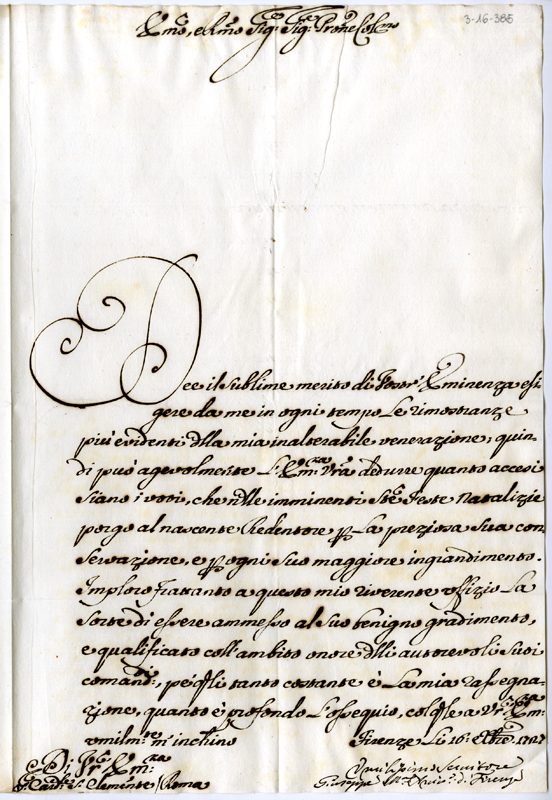 3-16-385
Emo, e Rmo Sig:r Sig:r Prone Colmo
Dee il sublime merito di Vostr' Eminenza esi
gere da me in ogni tempo le rimostranze
più evidenti dlla mia inalterabile venerazione; quin-
di può agevolmente l'Em:za Vrã dedurre quanto accesi
siano i voti, che nelle imminenti Ste Feste Natalizie
porgo al nascente Redentore p la preziosa sua con
servazione, e p ogni suo maggiore ingrandimento.
Imploro frattanto a questo mio riverente ofizio la
sorte di essere ammesso al suo benigno gradimento,
e qualificato coll'ambito onore dlli autorevoli suoi
comandi:, pe i qli tanto costante è la mia rassegna-
zione, quanto è profondo l'ossequio, col qle a Vrã Em:
umilm:te m'inchino Firenze li 16: Xbre 1727
Di Vr Em:za
S. Card:le S. Clemente / Roma
Umilissimo Servitore
Giuseppe di Firenze